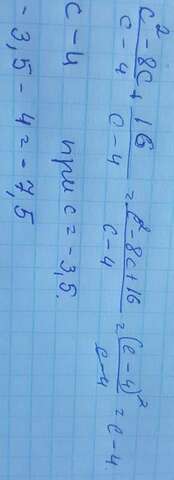 c² - 8c / c - 4 + 16 / c - 4 = c² - 8c + 16 / c - 4 = (c - 4)² / c - 4 = c - 4.
c - 4 при c = -3,5.
-3,5 - 4 = -7,5